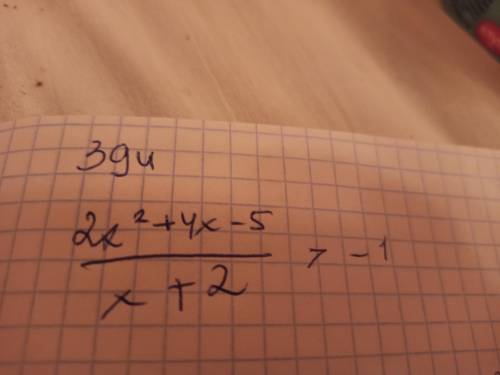 3 gu
2x² + 4x - 5
x + 2
> -1